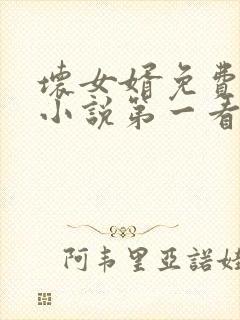 壞女婿免費
小說第一看
阿韦里亞諾娃